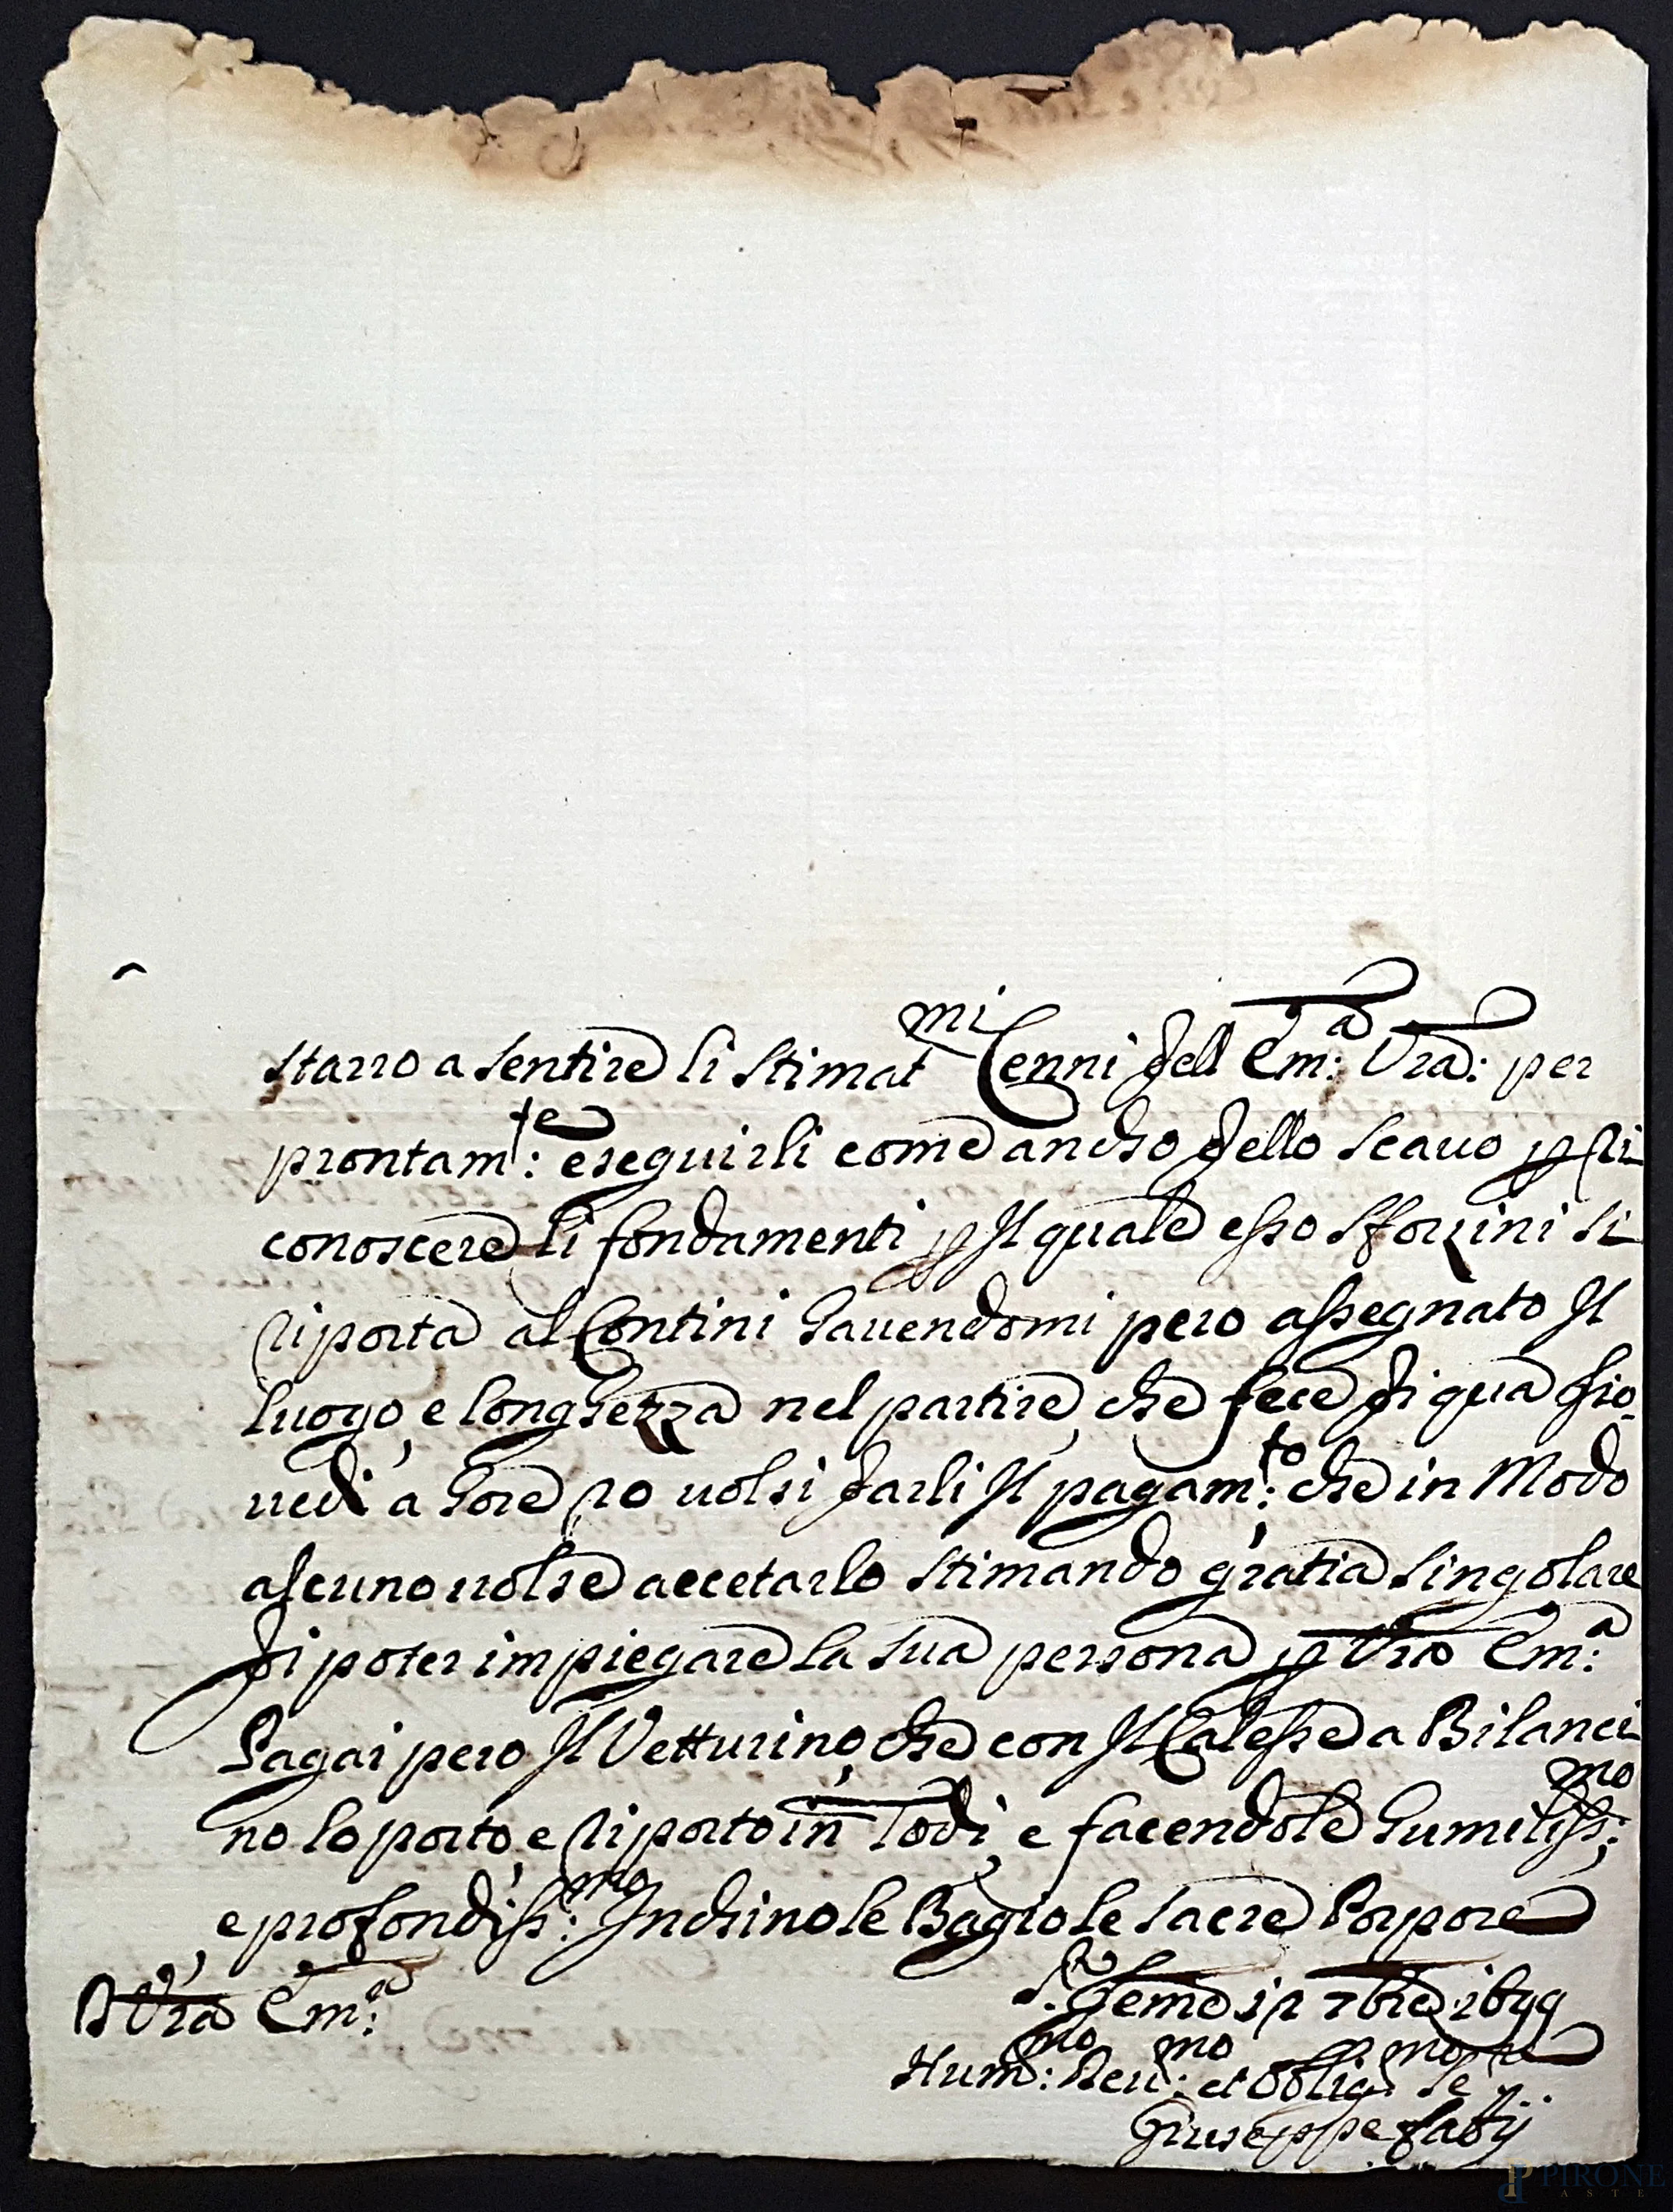 starro a sentire li stimat^mi Cenni dell Em:^a Vra: per
prontam:^te eseguirli come ancho dello scauo p ri
conoscere li fondamenti p Il quale esso Sforzini si
riporta al Contini hauendomi pero assegnato Il
luogo, e longhezza nel partire, che fece di qua Gio-
uedi a hore 20 uolsi darli Il pagam:^to che in Modo
alcuno uolse accetarlo stimando gratia singolare
di poter impiegare la sua persona p Vra Em:^a
Pagai pero Il Vetturino, che con Il Calesse a Bilanci
no lo porto, e riporto in Todi, e facendole humiliss:^mo
e profondiss:^mo Inchino le Bagio le sacre Porpore
D Vra Em:^a
S. Gemini 7bre
Hum:^mo Deu:^mo et Oblig^mo Se^re
Giuseppe Fabij
PIRONE
ASTE